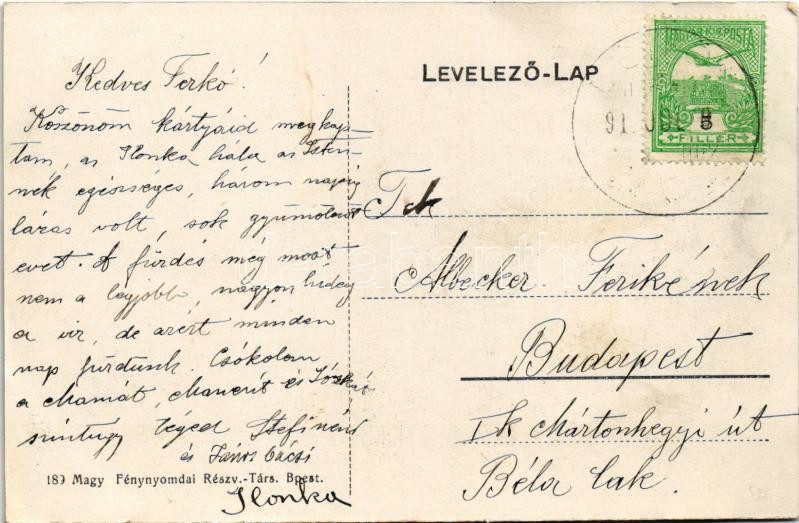 Kedves Ferkó!
Köszönöm kártyáid megkap-
tam, az Ilonka hála az Isten-
nek egészséges, három napig
lázas volt, sok gyümölcsöt
evett. A fürdés még most
nem a legjobb, nagyon hideg
a víz, de azért minden
nap fürdünk. Csókolom
a Mamát, és
szintúgy Téged Stefi néni
és János bácsi
Ilonka
189 Magy Fénynyomdai Részv.-Társ. Bpest.
LEVELEZŐ-LAP
MAGYAR KIR. POSTA
5
FILLÉR
91
Tek
Albecker Ferikének
Budapest
Ik Mártonhegyi út
Béla lak.
darabanth